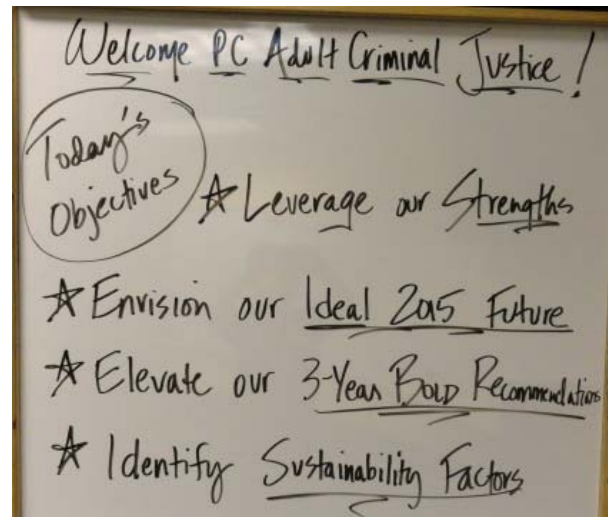 Welcome PC Adult Criminal Justice!
Today's
Objectives
☆ Leverage our Strengths
☆ Envision our Ideal 2015 Future
☆ Elevate our 3-Year BOLD Recommendations
☆ Identify Sustainability Factors